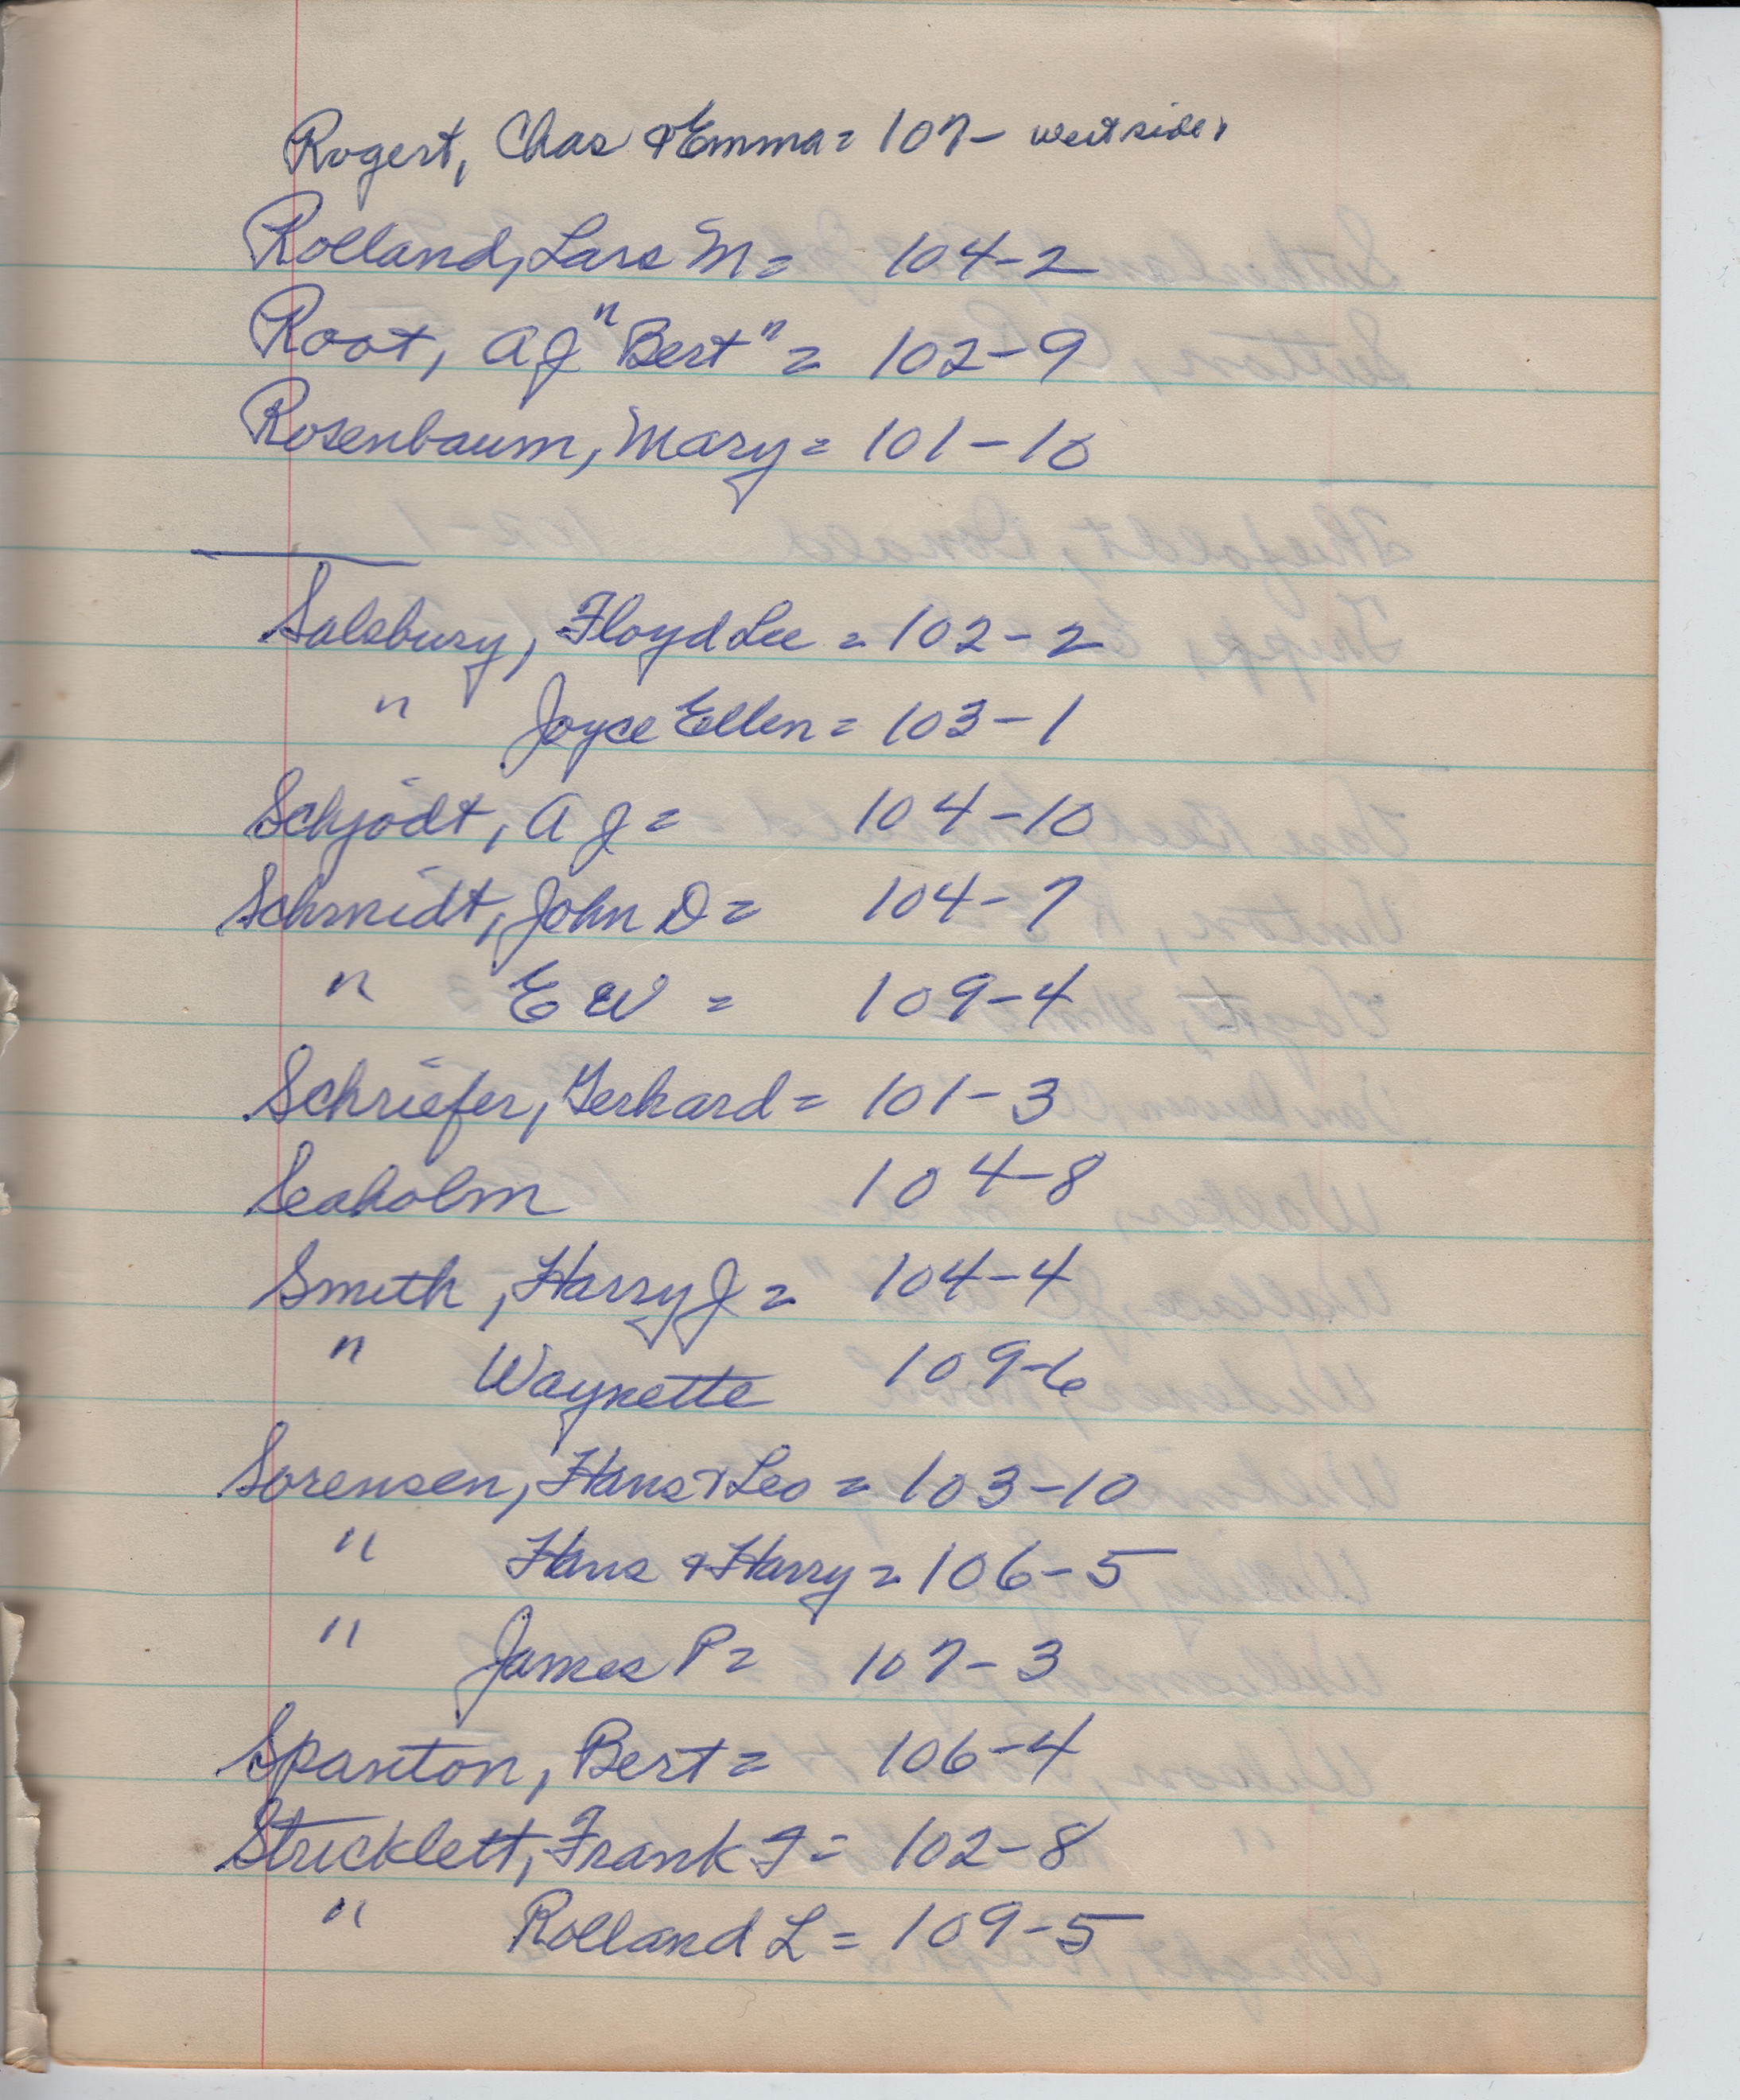 Rogert, Chas & Emma = 107 - west side,
Rolland, Lars M = 104-2
Root, A J "Bert" = 102-9
Rosenbaum, Mary = 101-10
Salsbury, Floyd Lee = 102-2
" Joyce Ellen = 103-1
Schjodt, A J = 104-10
Schmidt, John D = 104-7
" E W = 109-4
Schriefer, Gerhard = 101-3
Seaholm 104-8
Smith, Harry J = 104-4
" Waynette 109-6
Sorensen, Hans & Leo = 103-10
" Hans & Harry = 106-5
" James P = 107-3
Spanton, Bert = 106-4
Stricklett, Frank I = 102-8
" Rolland L = 109-5